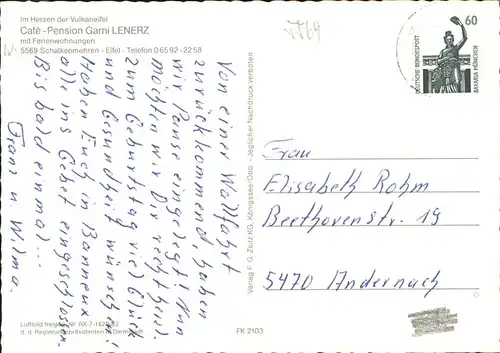 Im Herzen der Vulkaneifel
Café - Pension Garni LENERZ
mit Ferienwohnungen
5569 Schalkenmehren - Eifel - Telefon 0 65 92 - 22 58
Von einer Wallfahrt
zurückkommend, haben
wir Pause eingelegt! Nun
möchten wir Dir recht herzl.
zum Geburtstag viel Glück
und Gesundheit wünschen!
Haben Euch in Banneux
alle ins Gebet eingeschlossen.
Bis bald einmal...
Franz u Wilma.
Luftbild freigeg. Nr.
d. d. Regierungspräsidenten in Darmstadt
Verlag F. G. Zeitz KG, Königssee/Obb. - Jeglicher Nachdruck verboten
FK 2103
60
DEUTSCHE BUNDESPOST
BAVARIA MÜNCHEN
Frau
Elisabeth Rohm
Beethovenstr. 19
5470 Andernach